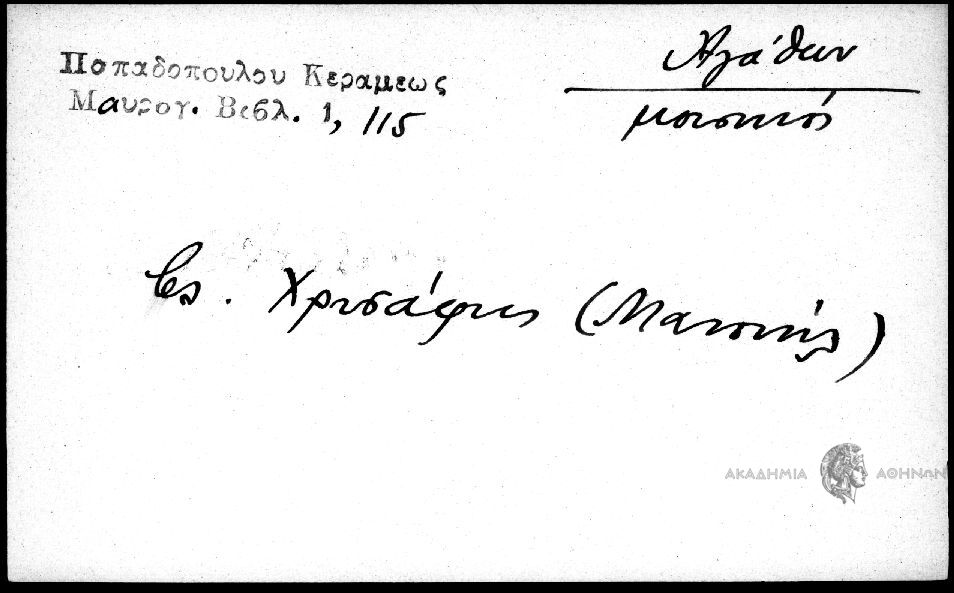 Παπαδοπουλου Κεραμεως
Μαυρογ. Βιβλ. 1, 115
Αγάθων
μουσικός
βλ. Χρυσάφης (Μανουήλ)
ΑΚΑΔΗΜΙΑ ΑΘΗΝΩΝ